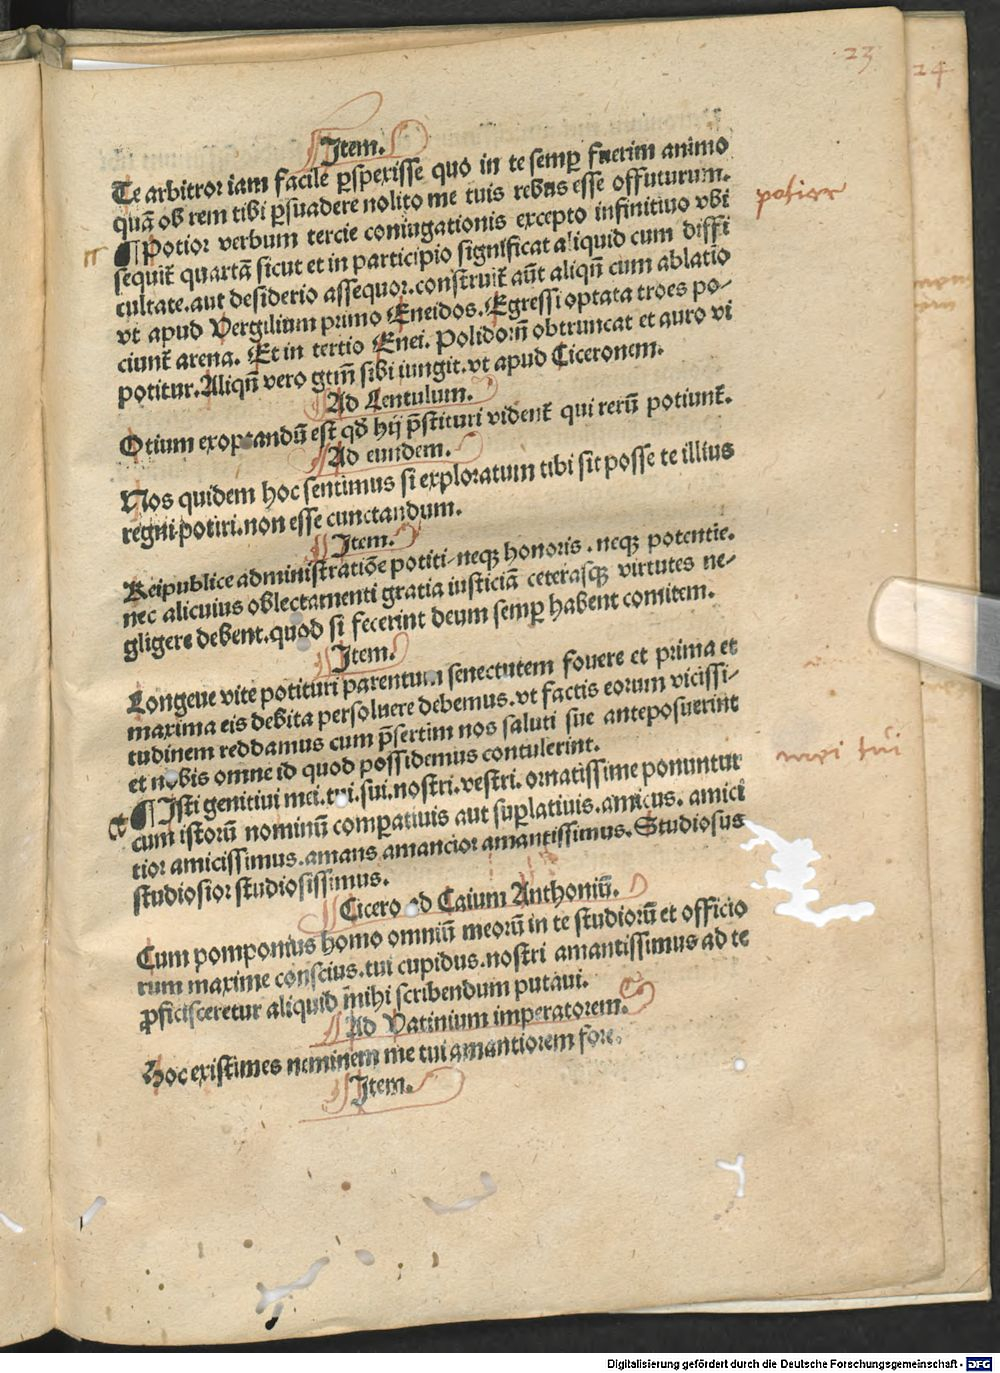 23
24
Item.
Te arbitror iam facile ꝑspexisse quo in te semꝑ fuerim animo
quã ob rem tibi ꝑsuadere nolito me tuis rebus esse offuturum.
¶ Potior verbum tercie coniugationis excepto infinitiuo vbi
potior
sequit᷑ quartã sicut et in participio significat aliquid cum diffi
cultate. aut desiderio assequor. construit᷑ aũt aliqñ cum ablatĩo
vt apud Vergilium primo Eneidos. Egressi optata troes po-
ciunt᷑ arena. Et in tertio Enei. Polidorũ obtruncat et auro vi
potitur. Aliqñ vero gtm̃ sibi iungit. vt apud Ciceronem.
Ad Lentulum.
Otium exoptandũ est qđ hij p̃stituri vident᷑ qui rerũ potiunt᷑.
Ad eundem.
Nos quidem hoc sentimus si exploratum tibi sit posse te illius
regni potiri. non esse cunctandum.
Item.
Reipublice administratiõe potiti neqꝫ honoris. neqꝫ potentie.
nec alicuius oblectamenti gratia iusticiã ceterasqꝫ virtutes ne-
gligere debent. quod si fecerint deum semꝑ habent comitem.
Item.
Longeue vite potituri parentum senectutem fouere et prima et
maxima eis debita persoluere debemus. vt factis eorum vicissi-
tudinem reddamus cum p̃sertim nos saluti sue anteposuerint
et nobis omne id quod possidemus contulerint.
¶ Isti genitiui mei. tui. sui. nostri. vestri. ornatissime ponuntur
mei tui
cum istorũ nominũ comꝑatiuis aut suꝑlatiuis. amicus. amici
tior amicissimus. amans amancior amantissimus. Studiosus
studiosior studiosissimus.
Cicero ad Caium Anthoniũ.
Cum pomponius homo omniũ meorũ in te studiorũ et officio
rum maxime conscius. tui cupidus. nostri amantissimus ad te
ꝓficisceretur aliquid mihi scribendum putaui.
Ad Vatinium imperatorem.
Hoc existimes neminem me tui amantiorem fore.
Item.
Digitalisierung gefördert durch die Deutsche Forschungsgemeinschaft - DFG